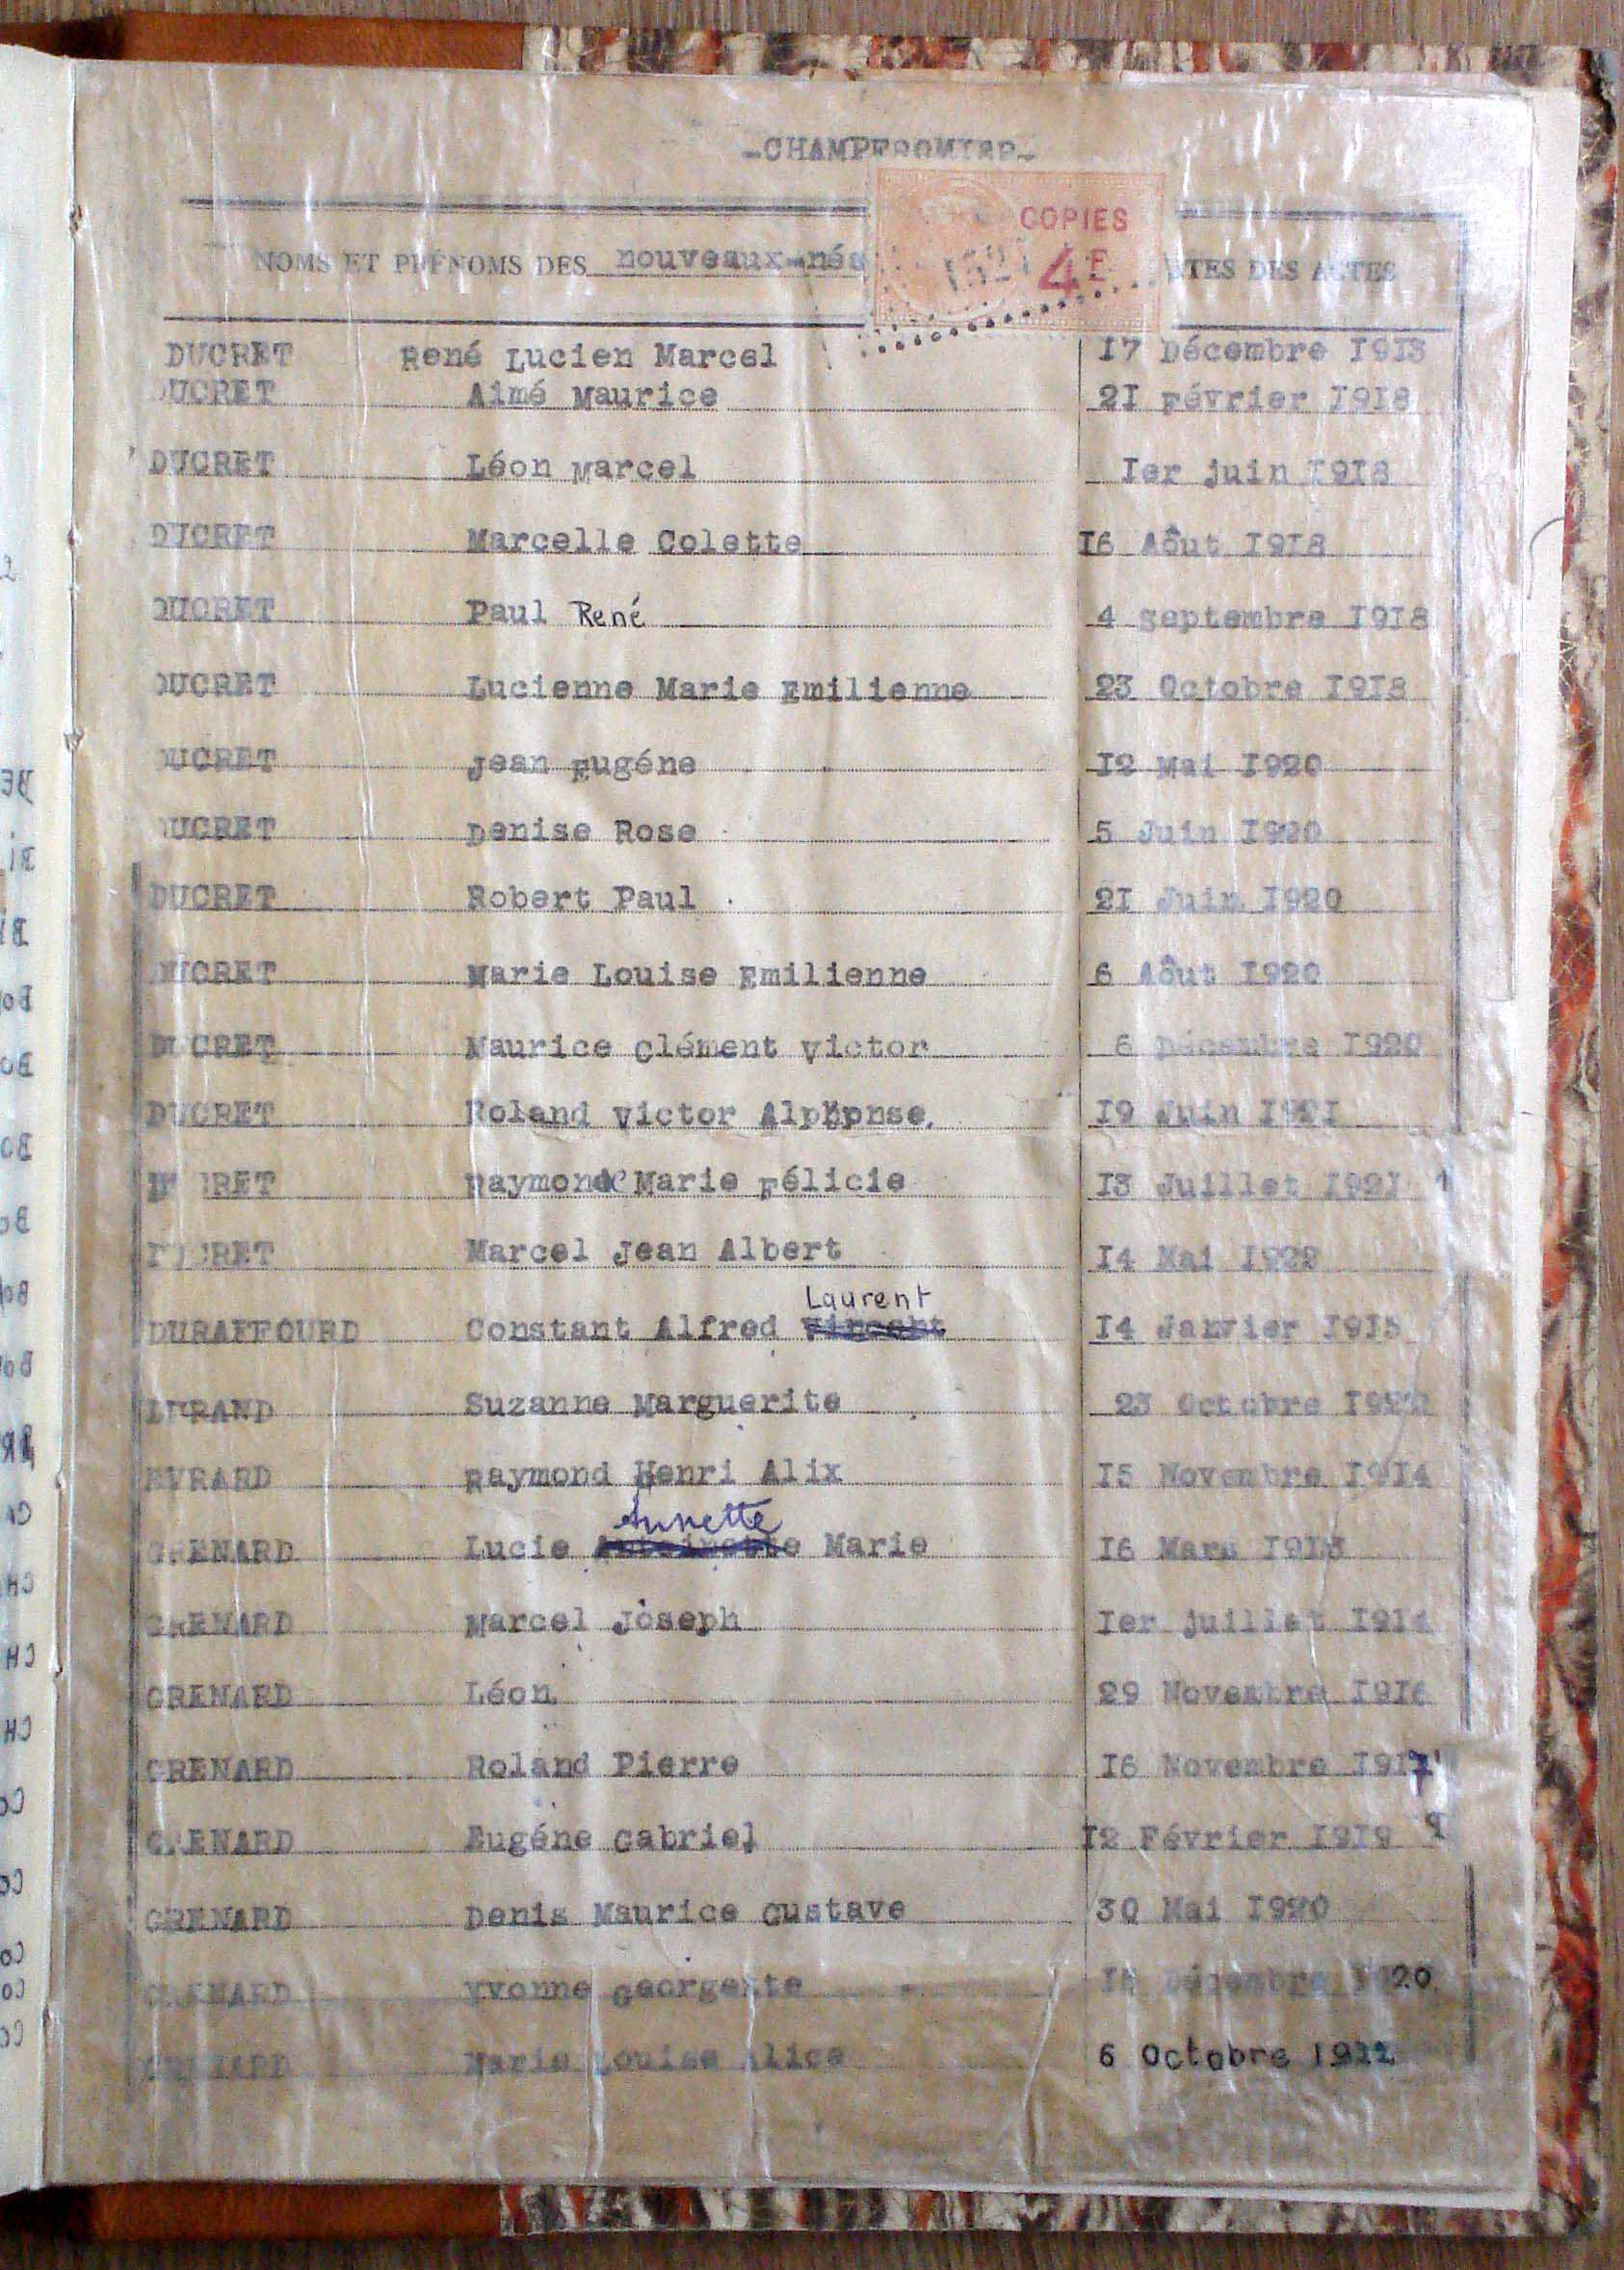 -CHAMPFROMIER-
COPIES
NOMS ET PRÉNOMS DES nouveaux-nés DATES DES ACTES
4F
DUCRET René Lucien Marcel 17 Décembre 1913
DUCRET Aimé Maurice 21 Février 1918
DUCRET Léon Marcel Ier juin 1918
DUCRET Marcelle Colette 16 Aôut 1918
DUCRET Paul René 4 septembre 1918
DUCRET Lucienne Marie Emilienne 23 Octobre 1918
DUCRET Jean Eugéne 12 Mai 1920
DUCRET Denise Rose 5 Juin 1920
DUCRET Robert Paul 21 Juin 1920
DUCRET Marie Louise Emilienne 6 Aôut 1920
DUCRET Maurice Clément Victor 6 Décembre 1920
DUCRET Roland Victor Alphonse 19 Juin 1921
DUCRET Raymonde Marie Félicie 13 Juillet 1921
DUCRET Marcel Jean Albert 14 Mai
Laurent
DURAFFOURD Constant Alfred Vincent 14 Janvier 1915
DURAND Suzanne Marguerite 23 Octobre
EVRARD Raymond Henri Alix 15 Novembre 1914
Annette
GRENARD Lucie Antoinette Marie 16 Mars 1913
GRENARD Marcel Joseph Ier juillet 1914
GRENARD Léon 29 Novembre 1916
GRENARD Roland Pierre 16 Novembre 1917
GRENARD Eugéne Gabriel 12 Février 1919 9
GRENARD Denis Maurice Gustave 30 Mai 1920
GRENARD Yvonne Georgette Décembre 1920
GRENARD Marie Louise Alice 6 Octobre 1922